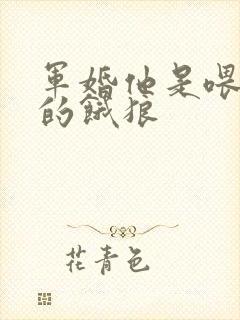 軍婚他是喂
的餓狼
花青色